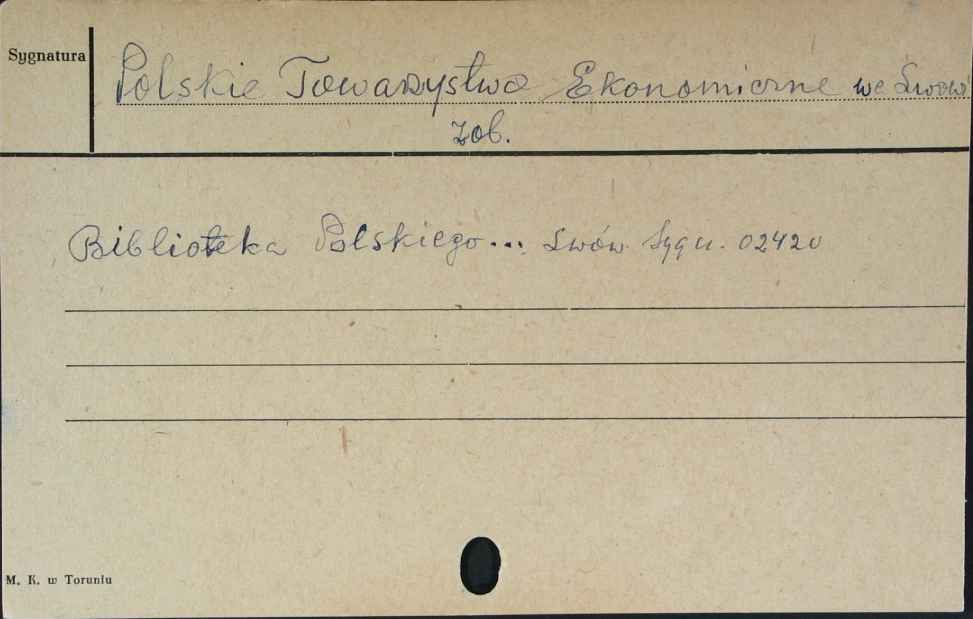 Sygnatura
Polskie Towarzystwo Ekonomiczne we Lwow
zob.
Biblioteka Polskiego... Lwów Sygn. 02420
M. K. w Toruniu